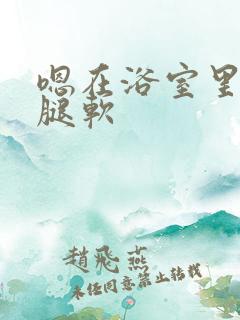 嗯在浴室里
腿軟
趙飛燕
未经同意禁止转载